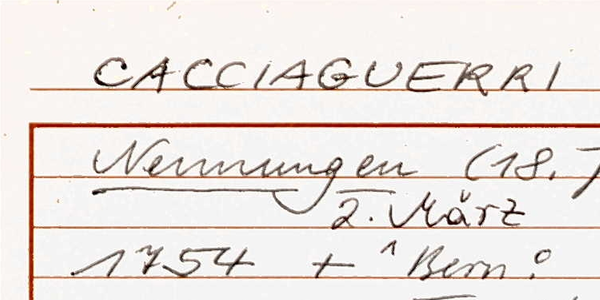 CACCIAGUERRI
Nennungen (18. J
2. März
1754 + 1 Bern: